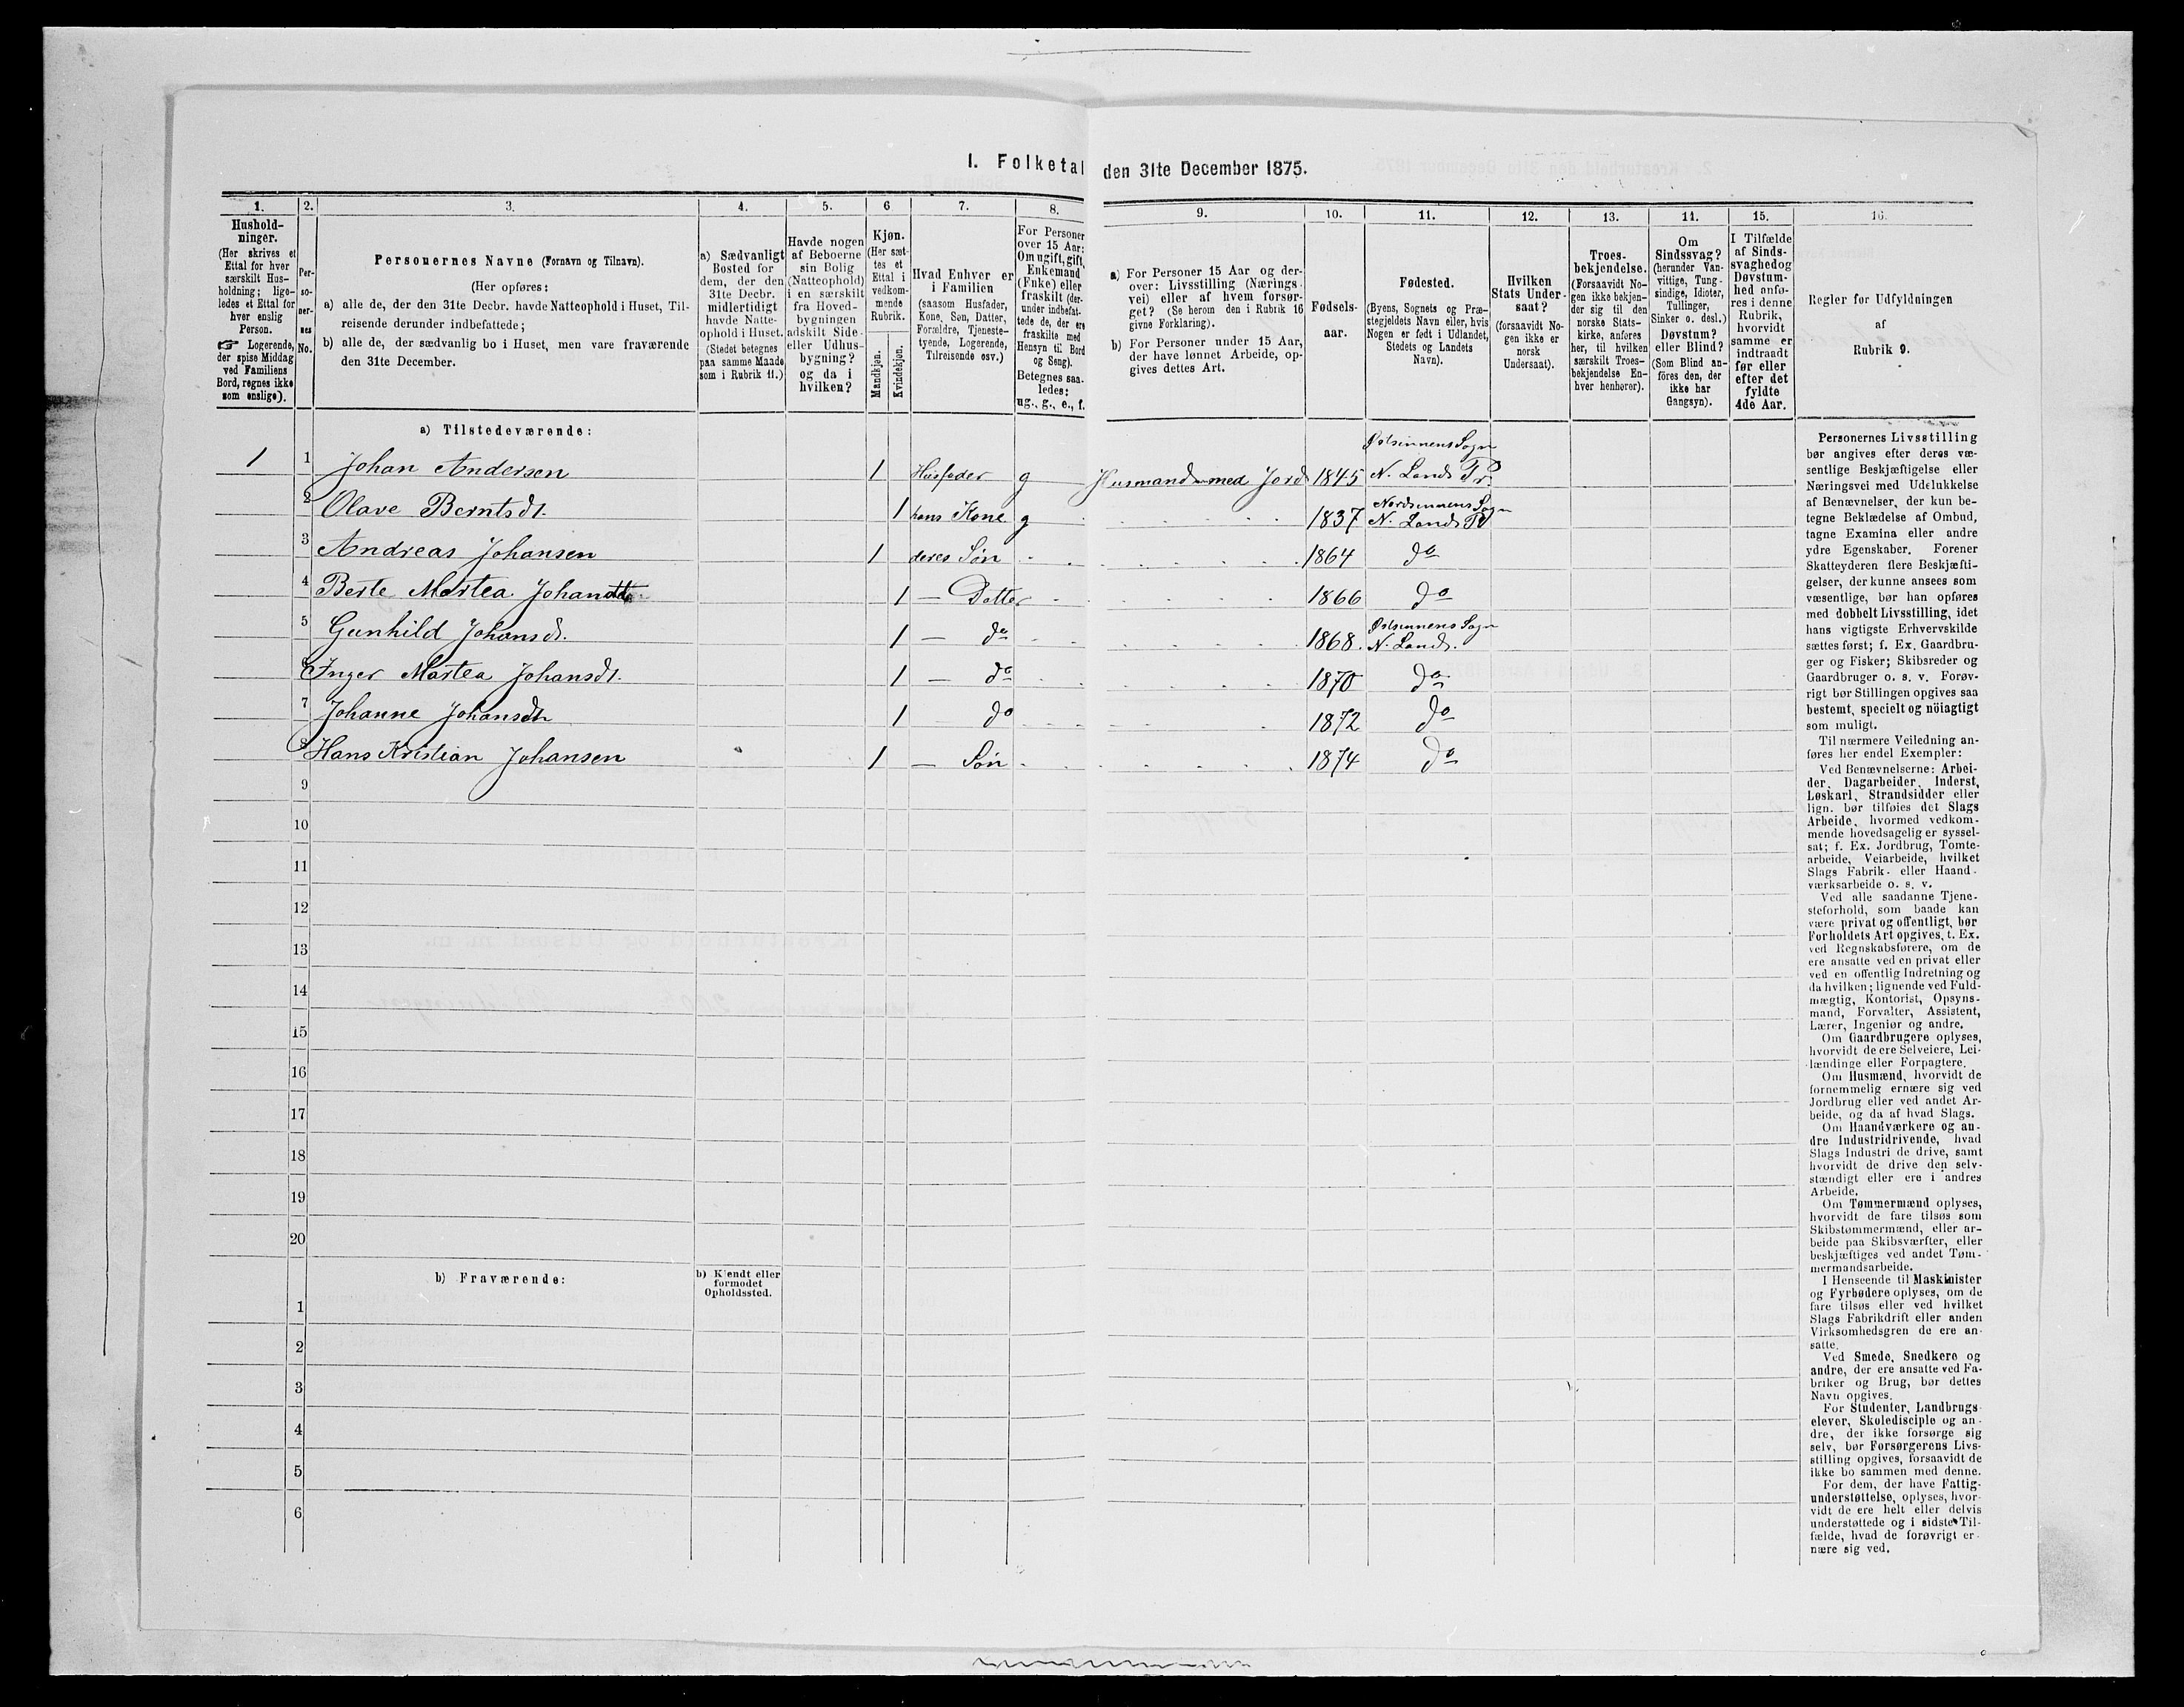 1. Folketal den 31te December 1875.
1.
2.
3.
4.
5.
6
7.
8.
9.
10.
11.
12.
13.
14.
15.
16.
Hushold-
ninger.
(Her skrives et
Ettal for hver
særskilt Hus-
holdning; lige-
ledes et Ettal for
hver enslig
Person.
☞ Logerende,
der spise Middag
ved Familiens
Bord, regnes ikke
som enslige).
Per-
so-
ner-
nes
No.
Personernes Navne (Fornavn og Tilnavn).
(Her opføres:
a) alle de, der den 31te Decbr. havde Natteophold i Huset, Til-
reisende derunder indbefattede;
b) alle de, der sædvanlig bo i Huset, men vare fraværende
den 31te December.
a) Sædvanligt
Bosted for
dem, der den
31te Decbr.
midlertidigt
havde Natte-
ophold i Huset.
(Stedet betegnes
paa samme Maade
som i Rubrik 11.)
Havde nogen
af Beboerne
sin Bolig
(Natteophold)
i en særskilt
fra Hoved-
bygningen
adskilt Side-
eller Udhus-
bygning?
og da i
hvilken?
Kjøn.
(Her sæt-
tes et
Ettal i
vedkom-
mende
Rubrik.
Mandkjøn.
Kvindekjøn.
Hvad Enhver er
i Familien
(saasom Husfader,
Kone, Søn, Datter,
Forældre, Tjeneste-
tyende, Logerende,
Tilreisende osv.)
For Personer
over 15 Aar:
Om ugift, gift,
Enkemand
(Enke) eller
fraskilt (der-
under indbefat-
tede de, der ere
fraskilte med
Hensyn til Bord
og Seng).
Betegnes saa-
ledes:
ug., g., e., f.
a) For Personer 15 Aar og der-
over: Livsstilling (Nærings-
vei) eller af hvem forsør-
get? (Se herom den i Rubrik 16
givne Forklaring).
b) For Personer under 15 Aar,
der have lønnet Arbeide, op-
gives dettes Art.
Fødsels-
aar.
Fødested.
(Byens, Sognets og Præ-
stegjeldets Navn eller, hvis
Nogen er født i Udlandet,
Stedets og Landets
Navn).
Hvilken
Stats Under-
saat?
(forsaavidt No-
gen ikke er
norsk
Undersaat).
Troes-
bekjendelse.
(Forsaavidt No-
gen ikke bekjen-
der sig til den
norske Stats-
kirke, anføres
her, til hvilken
særskilt Troes-
bekjendelse En-
hver henhører).
Om
Sindssvag?
(herunder Van-
vittige, Tung-
sindige, Idioter,
Tullinger,
Sinker o. desl.)
Døvstum?
eller Blind?
(Som Blind an-
føres den, der
ikke har
Gangsyn).
I Tilfælde
af Sinds-
svaghed og
Døvstum-
hed anfø-
res i denne
Rubrik,
hvorvidt
samme er
indtraadt
før eller
efter det
fyldte
4de Aar.
Regler for Udfyldningen
af
Rubrik 9.
a) Tilstedeværende:
1 1 Johan Andersen 1 Husfader g Husmand med Jord 1845 Østsinnens Sogn N. Lands Pr.
2 Olave Berntsdt. 1 hans Kone g 1837 Nordsinnens Sogn N. Lands Pr
3 Andreas Johansen 1 deres Søn 1864 do
4 Berte Martea Johansdt. 1 — Datter 1866 do
5 Gunhild Johansd. 1 — do 1868. Østsinnens Sogn N. Lands.
6 Inger Martea Johansdt. 1 — do 1870 do
7 Johanne Johansdt 1 — do 1872 do
8 Hans Kristian Johansen 1 — Søn 1874 do
9
10
11
12
13
14
15
16
17
18
19
20
b) Fraværende:
b) Kjendt eller
formodet
Opholdssted.
1
2
3
4
5
6
Personernes Livsstilling
bør angives efter deres væ-
sentlige Beskjæftigelse eller
Næringsvei med Udelukkelse
af Benævnelser, der kun be-
tegne Beklædelse af Ombud,
tagne Examina eller andre
ydre Egenskaber. Forener
Skatteyderen flere Beskjæfti-
gelser, der kunne ansees som
væsentlige, bør han opføres
med dobbelt Livsstilling, idet
hans vigtigste Erhvervskilde
sættes først; f. Ex. Gaardbru-
ger og Fisker; Skibsreder og
Gaardbruger o. s. v. Forøv-
rigt bør Stillingen opgives saa
bestemt, specielt og nöiagtigt
som muligt.
Til nærmere Veiledning an-
føres her endel Exempler:
Ved Benævnelserne: Arbei-
der, Dagarbeider, Inderst,
Løskarl, Strandsidder eller
lign. bør tilføies det Slags
Arbeide, hvormed vedkom-
mende hovedsagelig er syssel-
sat; f. Ex. Jordbrug, Tomte-
arbeide, Veiarbeide, hvilket
Slags Fabrik- eller Haand-
værksarbeide o. s. v.
Ved alle saadanne Tjene-
steforhold, som baade kan
være privat og offentligt, bør
Forholdets Art opgives, t. Ex.
ved Regnskabsførere, om de
ere ansatte ved en privat eller
ved en offentlig Indretning og
da hvilken; lignende ved Fuld-
mægtig, Kontorist, Opsyns-
mand, Forvalter, Assistent,
Lærer, Ingeniør og andre.
Om Gaardbrugere oplyses,
hvorvidt de ere Selveiere, Lei-
lændinge eller Forpagtere.
Om Husmænd, hvorvidt de
fornemmelig ernære sig ved
Jordbrug eller ved andet Ar-
beide, og da af hvad Slags.
Om Haandværkere og an-
dre Industridrivende, hvad
Slags Industri de drive, samt
hvorvidt de drive den selv-
stændigt eller ere i andres
Arbeide.
Om Tømmermænd oplyses,
hvorvidt de fare tilsøs som
Skibstømmermænd, eller ar-
beide paa Skibsværfter, eller
beskjæftiges ved andet Tøm-
mermandsarbeide.
I Henseende til Maskinister
og Fyrbødere oplyses, om de
fare tilsøs eller ved hvilket
Slags Fabrikdrift eller anden
Virksomhedsgren de ere an-
satte.
Ved Smede, Snedkere og
andre, der ere ansatte ved Fa-
briker og Brug, bør dettes
Navn opgives.
For Studenter, Landbrugs-
elever, Skoledisciple og an-
dre, der ikke forsørge sig
selv, bør Forsørgerens Livs-
stilling opgives, forsaavidt de
ikke bo sammen med denne.
For dem, der have Fattig-
understøttelse, oplyses, hvor-
vidt de ere helt eller delvis
understøttede og i sidste Til-
fælde, hvad de forøvrigt er-
nære sig ved.